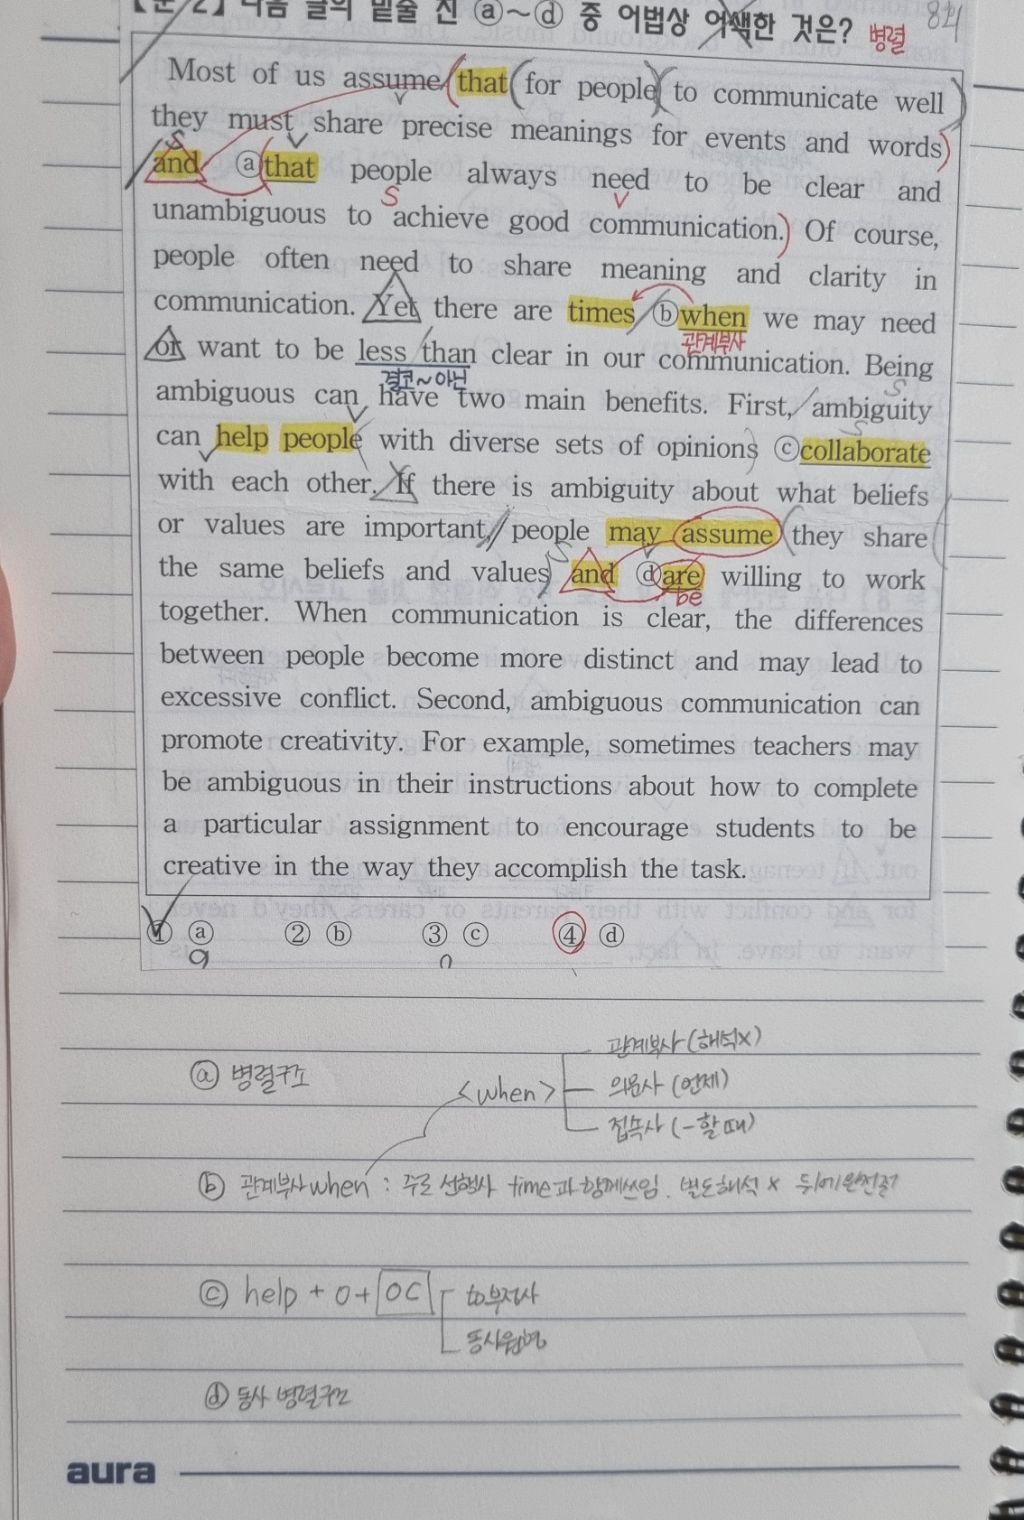 【문 2】 다음 글의 밑줄 친 ⓐ~ⓓ 중 어법상 어색한 것은? 병렬
Most of us assume that for people to communicate well
they must share precise meanings for events and words
and ⓐthat people always need to be clear and
S
S
unambiguous to achieve good communication. Of course,
people often need to share meaning and clarity in
communication. Yet there are times ⓑwhen we may need
관계부사
or want to be less than clear in our communication. Being
결코~아닌
ambiguous can have two main benefits. First, ambiguity
S
can help people with diverse sets of opinions ⓒcollaborate
with each other. If there is ambiguity about what beliefs
or values are important, people may assume they share
S
the same beliefs and values and ⓓare willing to work
be
together. When communication is clear, the differences
between people become more distinct and may lead to
excessive conflict. Second, ambiguous communication can
promote creativity. For example, sometimes teachers may
be ambiguous in their instructions about how to complete
a particular assignment to encourage students to be
creative in the way they accomplish the task.
① ⓐ ② ⓑ ③ ⓒ ④ ⓓ
관계부사 (해석x)
ⓐ 병렬구조 <when> 의문사 (언제)
접속사 (~할 때)
ⓑ 관계부사 when : 주로 선행사 time과 함께쓰임. 별도해석 x 뒤에완전절
ⓒ help + O + OC to부정사
동사원형
ⓓ 동사 병렬구조
aura